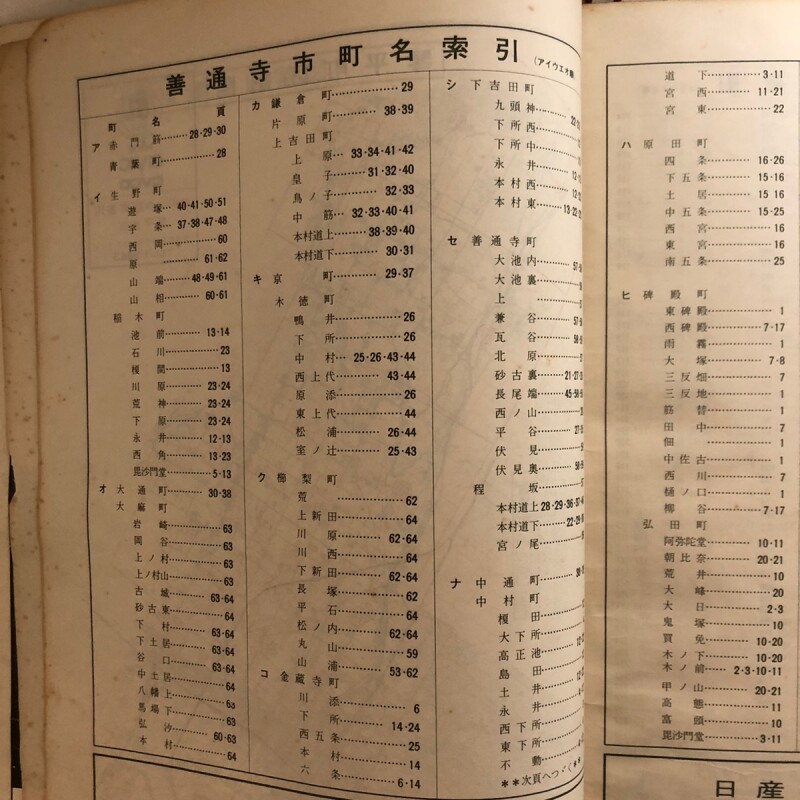 善通寺市町名索引
町名 頁
ア 赤門筋………28・29・30
青葉町………28
イ 生野町
遊塚…40・41・50・51
字条…37・38・47・48
西岡………60
原………61・62
山端………48・49・61
山相………60・61
稲木町
池前………13・14
石川………23
榎間………13
川原………23・24
荒神………23・24
下原………23・24
永井………12・13
西角………13・23
毘沙門堂………5・13
オ 大通町………30・38
大麻町
岩崎………63
岡谷………63
上ノ村………63
上ノ村山………63
古城………63・64
砂古東………64
下村………63・64
下土居………63・64
谷口………63・64
中土居………64
八幡上………63
馬場下………63
弘汐………60・63
本村………64
カ 鎌倉町………29
片原町………38・39
上吉田町
上原…33・34・41・42
皇子………31・32・40
鳥ノ子………32・33
中筋…32・33・40・41
本村道上………38・39・40
本村道下………30・31
キ 京町………29・37
木徳町
鴨井………26
下所………26
中村…25・26・43・44
西上代………43・44
原添………26
東上代………44
松浦………26・44
室ノ辻………25・43
ク 櫛梨町
荒………62
上新田………64
川原………62・64
川西………64
下新田………62・64
長塚………62
平石………64
松ノ内………62・64
丸山………59
山浦………53・62
コ 金蔵寺町
川添………6
下所………14・24
西五条………25
本村………14
六条………6・14
シ 下吉田町
九頭神
下所西
下所中
永井
本村西
本村東
セ 善通寺町
大池内
大池裏
上
兼谷
瓦谷
北原
砂古裏
長尾端
西ノ山
平谷
伏見
伏見奥
程坂
本村道上
本村道下
宮ノ尾
ナ 中通町
中村町
榎田
大下所
高正池
島田
土井
永井
西下所
東下所
不動
**次頁へつづく**
道下………3・11
宮西………11・21
宮東………22
ハ 原田町
四条………16・26
下五条………15・16
土居………15 16
中五条………15・25
西宮………16
東宮………16
南五条………25
ヒ 碑殿町
東碑殿………1
西碑殿………7・17
雨霧………1
大塚………7・8
三反畑………7
三反地………1
筋替………1
田中………7
佃………1
中佐古………1
西川………7
樋ノ口………1
柳谷………7・17
弘田町
阿弥陀堂………10・11
朝比奈………20・21
荒井………10
大峰………20
大日………2・3
鬼塚………10
買免………10・20
木ノ下………10・20
木ノ前………2・3・10・11
甲ノ山………20・21
高態………11
富頭………10
毘沙門堂………3・11
日産